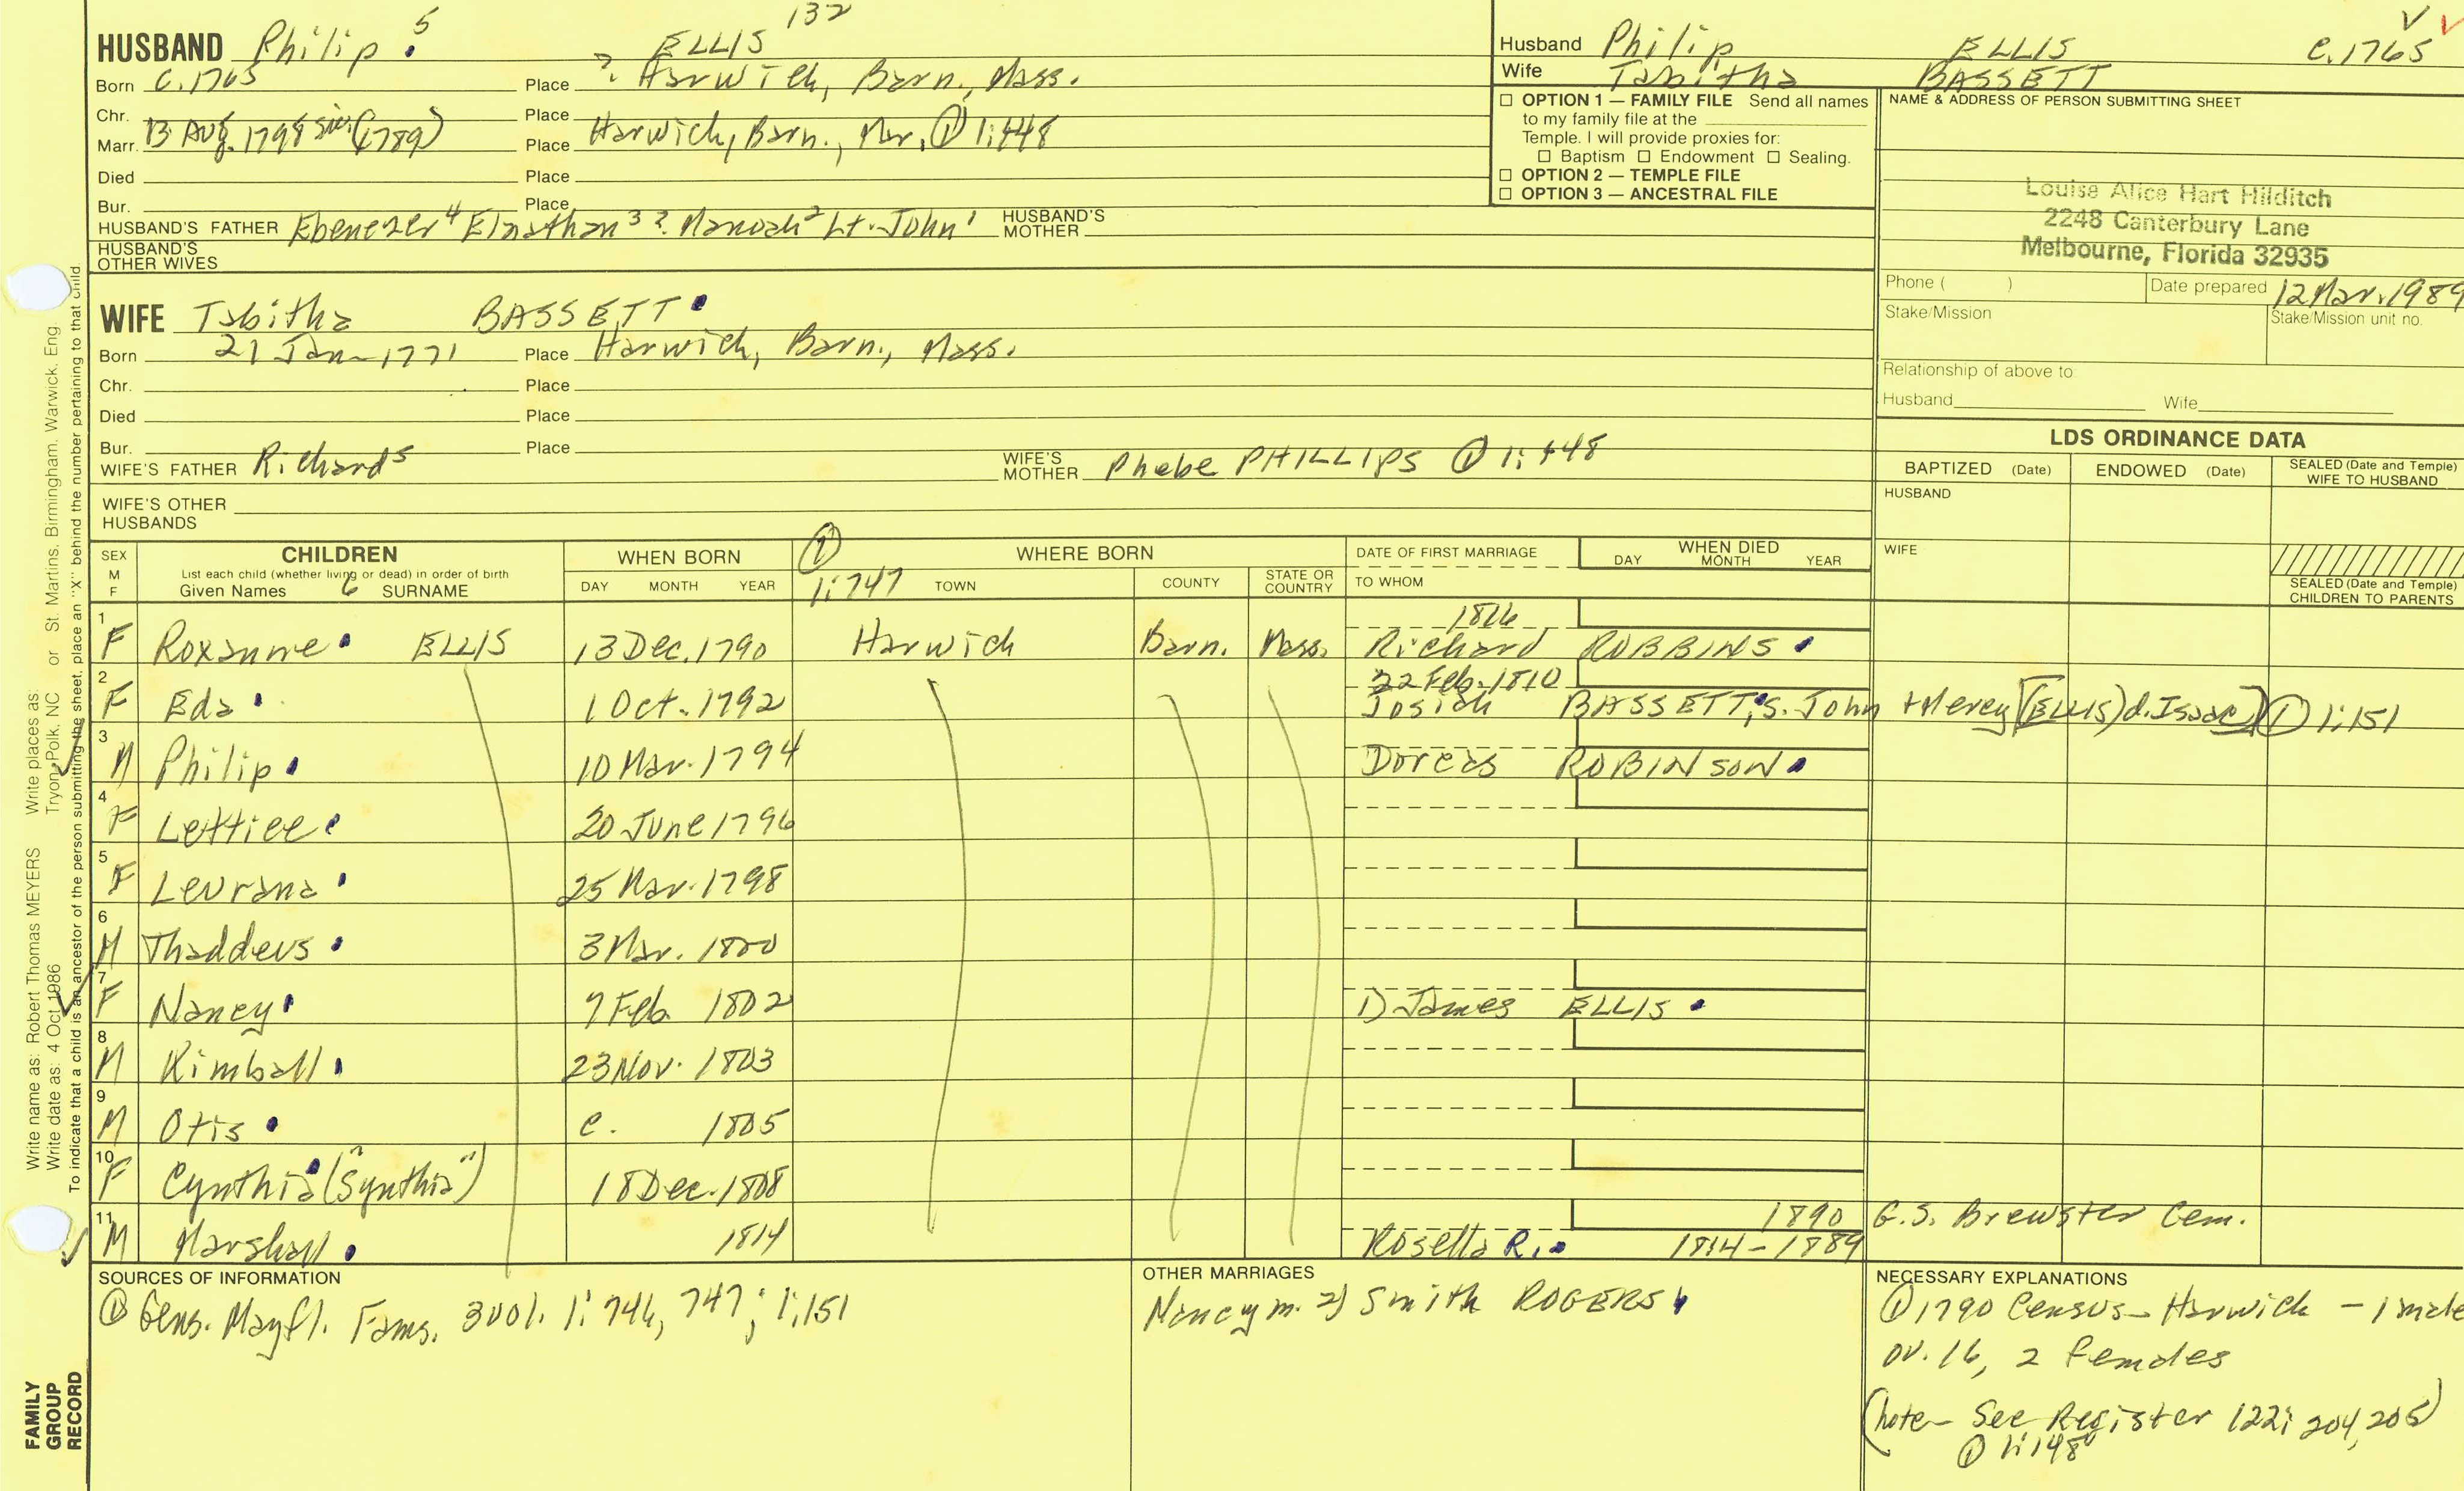 132
HUSBAND Philip 5 ELLIS
Born C. 1765 Place ? Harwich, Barn., Mass.
Chr. Place
Marr. 13 Aug. 1798 sic (1789) Place Harwich, Barn., Mar. ① 1:448
Died Place
Bur. Place
HUSBAND'S FATHER Ebenezer 4 Elnathan 3 ? Manoah 2 Lt. John 1 HUSBAND'S MOTHER
HUSBAND'S OTHER WIVES
Husband Philip ELLIS C. 1765
Wife Tabitha BASSETT
☐ OPTION 1 — FAMILY FILE Send all names
to my family file at the
Temple. I will provide proxies for:
☐ Baptism ☐ Endowment ☐ Sealing.
☐ OPTION 2 — TEMPLE FILE
☐ OPTION 3 — ANCESTRAL FILE
NAME & ADDRESS OF PERSON SUBMITTING SHEET
Louise Alice Hart Hilditch
2248 Canterbury Lane
Melbourne, Florida 32935
Phone ( ) Date prepared 12 Mar. 1989
Stake/Mission Stake/Mission unit no.
Relationship of above to:
Husband Wife
WIFE Tabitha BASSETT
Born 21 Jan. 1771 Place Harwich, Barn., Mass.
Chr. Place
Died Place
Bur. Place
WIFE'S FATHER Richard 5 WIFE'S MOTHER Phebe PHILLIPS ① 1:448
WIFE'S OTHER HUSBANDS
LDS ORDINANCE DATA
BAPTIZED (Date) ENDOWED (Date) SEALED (Date and Temple) WIFE TO HUSBAND
HUSBAND
WIFE
SEALED (Date and Temple) CHILDREN TO PARENTS
SEX M F CHILDREN WHEN BORN ① WHERE BORN DATE OF FIRST MARRIAGE WHEN DIED
List each child (whether living or dead) in order of birth
Given Names 6 SURNAME DAY MONTH YEAR 1:747 TOWN COUNTY STATE OR COUNTRY TO WHOM DAY MONTH YEAR
1816
1 F Roxanne ELLIS 13 Dec. 1790 Harwich Barn. Mass. Richard ROBBINS
22 Feb. 1810
2 F Eda 1 Oct. 1792 Josiah BASSETT, s. John + Mercy [(ELLIS) d. Isaac] ① 1:151
3 M Philip 10 Mar. 1794 Dorcas ROBINSON
4 F Lettice 20 June 1796
5 F Levrana 25 Mar. 1798
6 M Thaddeus 3 Mar. 1800
7 F Nancy 7 Feb. 1802 1) James ELLIS
8 M Kimball 23 Nov. 1803
9 M Otis c. 1805
10 F Cynthia ("Synthia") 18 Dec. 1808
1890 G.S. Brewster Cem.
11 M Marshall 1814 Rosetta R. 1814-1889
SOURCES OF INFORMATION
① Gens. Mayfl. Fams. 3 vol. 1:746, 747; 1:151
OTHER MARRIAGES
Nancy m. 2) Smith ROGERS
NECESSARY EXPLANATIONS
① 1790 Census - Harwich - 1 male
ov. 16, 2 females
(note - See Register 122; 204, 205)
① 1:148
Write name as: Robert Thomas MEYERS Write places as:
Write date as: 4 Oct 1986 Tryon, Polk, NC or St. Martins, Birmingham, Warwick, Eng.
To indicate that a child is an ancestor of the person submitting the sheet, place an "X" behind the number pertaining to that child.
FAMILY
GROUP
RECORD